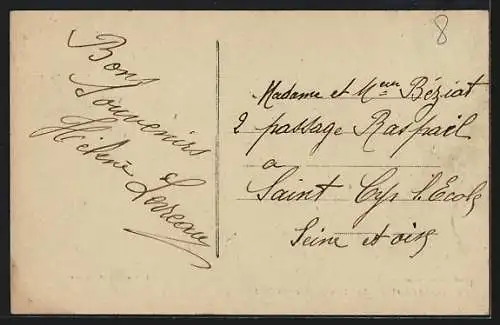 Bons
Souvenirs
Hélène
8
Madame et Mᵉˡˡᵉ Béziat
2 passage Raspail
a
Saint Cyr l'Ecole
Seine et oise